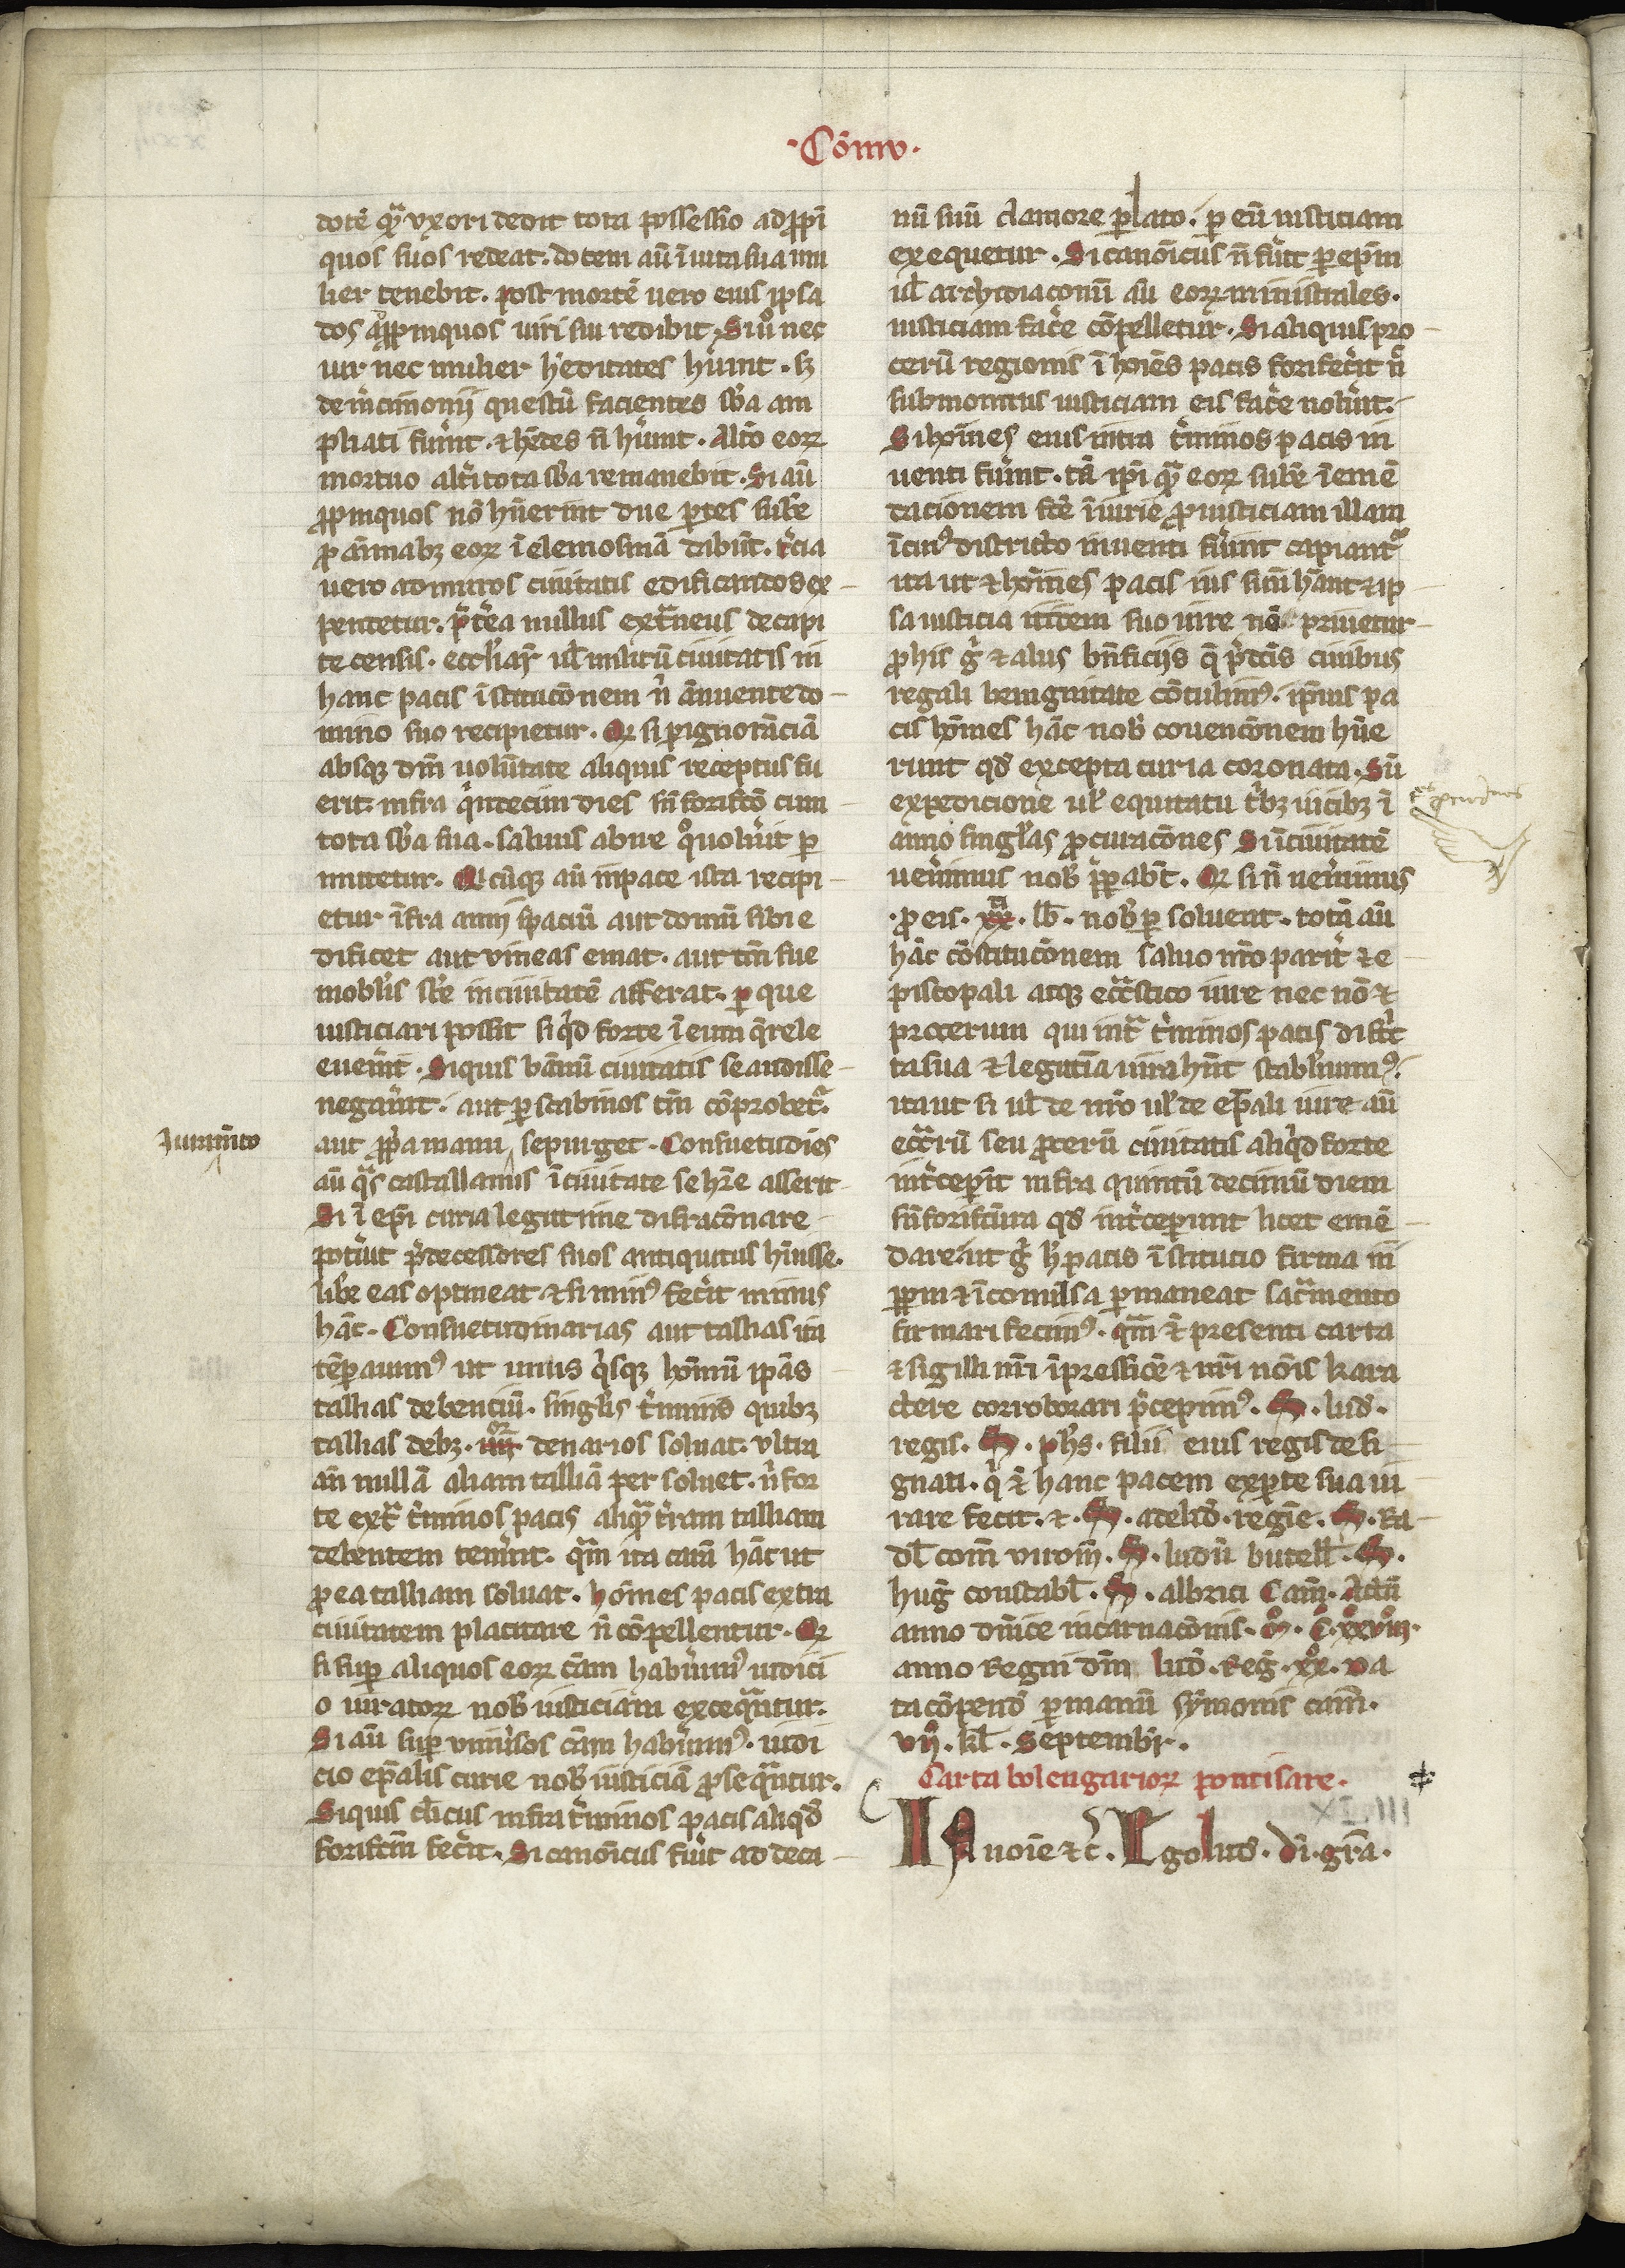 ·Cōmu·
dotē qͣ vxori dedit tota possessio ad ꝓpi
quos suos redeat. dotem aū ī uita sua mu
lier tenebit. post mortē uero eius ipsa
dos ad ꝓpinquos uiri sui redibit. Si uͦ nec
uir nec mulier h̾editates hūint. sꝫ
de m̾cimonij questū facientes sb̄a am
pliati fu̾int. ⁊ h̾edes n̄ hūint. Alt̾o eoꝝ
mortuo alt̾i tota sb̄a remanebit. Si aū
ꝓpinquos nō hūerint due ꝑtes sub̄e
ꝓ animabꝫ eoꝝ ī elemosinā dabūt. t̾cia
uero ad muros ciuitatis edificandos ex
pendetur. p̄t̾ea nullus ext̾neus de capi
te censis. eccl̾iaꝝ ul̾ militū ciuitatis in
hanc pacis īstitucōnem n̄ ānuente do
mino suo recipietur. Qꝫ si ꝑ ignorāciā
absqꝫ dn̄i uolūtate aliquis receptus fu
erit: infra q̾ndecim dies sn̄ forifc̄o cum
tota sb̄a sua. saluus abire qͦ uolu̾it ꝑ
mittetur. Qicūqꝫ aū in pace ista recipi
etur īfra anni spaciū aut domū sibi e
dificet aut vineas emat. aut tm̄ sue
mobl̾is sb̄e in ciuitatē afferat. ꝑ que
iusticiari possit si q̾d forte ī eum q̾rele
euen̾it. Si quis bānū ciuitatis se audisse
nega̾uit. aut ꝑ scabinos tm̄ cōprobet᷑.
Iuram̄to
aut ꝓp̾a manu se purget. Consuetudies
aū q̾s castallanus ī ciuitate se hr̄e asserit
Si ī ep̄i curia legittime disracōnare
pot̾uit p̾decessores suos antiquitus hūisse.
libe eas optineat ⁊ si minꝰ fec̾it minus
hāc. Consuetudinarias aut tallias ita
tēꝑauimꝰ ut unus q̾sqꝫ hoīnū ip̄as
tallias debenciū. singl̾is t̾minis quibꝫ
tallias debꝫ. iiijͦʳ denarios soluat. vltra
aū nullā aliam talliā persoluet. n̄ for
te ext̾ t̾minos pacis aliqͣ t̾ram talliam
debentem tenu̾it. qm̄ ita carā hāc ut
ꝓ ea talliam soluat. hoīnes pacis extra
ciuitatem placitare n̄ cōpellentur. Qꝫ
si suꝑ aliquos eoꝝ cām habu̾imꝰ iudici
o iuratoꝝ nob̾ iusticiam exceq̾ntur.
Si aū suꝑ vniu̾sos cām habu̾imꝰ. iudi
cio ep̄alis curie nob̾ iusticiā ꝓseq̾ntur.
Si quis cl̾icus infra t̾minos pacis aliqd̾
forifc̄m fec̾it. Si canōicus fu̾it ad deca
nū suū clamore ꝑlato. ꝑ eū iusticiam
exequetur. Si canōicus n̄ fu̾it ꝑ ep̄m
ul̾ archidiaconū aū eoꝝ ministrales.
iusticiam fac̾e cōpelletur. Si aliquis pro
cerū regionis ī hoīes pacis forifec̾it n̾
submonitus iusticiam eis fac̾e nolu̾it.
Si hoīnes eius intra t̾minos pacis in
uenti fu̾int. tā ip̄i qͣ eoꝝ sub̄e ī emē
dacionem fc̄e iniurie ꝓ iusticiam illam
ī cuiꝰ districto inuenti fu̾int capiant᷑
ita ut ⁊ hoīnes pacis ius suū hānt ⁊ ip
sa iusticia itidem suo iure nō priuetur
ꝓ his g̾ ⁊ aliis bn̄ficiis q̄ p̾dc̄is ciuibus
regali benignitate cōtulimꝰ. ip̄ius pa
cis hoīnes hāc nob̾ couencōnem hūe
runt qd̾ excepta curia coronata. Sū
expedicione ul̾ equitatu t̾bꝫ uicibꝫ ī
anno singl̾as ꝓcuracōnes Si ī ciuitatē
uen̾imus nob̾ p̾ꝑabt̄. Qꝫ si n̄ uen̾imus
·ꝓ eis. xxͭⁱ. lb̾. nob̾ ꝑsoluent. totā aū
hāc cōstitucōnem saluo nr̄o parit̾ ⁊ e
piscopali atqꝫ ecc̄astico iure nec nō ⁊
procerum qui int̾ t̾minos pacis distͥc
ta sua ⁊ legittīa iura hn̄t stabliuimꝰ.
ita ut si ul̾ de nr̄o ul̾ de ep̄ali iure aū
ecc̄arū seu ꝓcerū ciuitatis aliq̾d forte
int̾ceꝑit infra quintū decimū diem
sn̄ forifc̄ura qd̾ int̾ceꝑunt licet emē
dare. ut g̾ h̾ pacis īstitutio firma in
ꝑpm ⁊ īconuulsa ꝑmaneat sac̾mento
firmari fecimꝰ. qm̄ ⁊ presenti carta
⁊ sigilli nr̄i īpressiōe ⁊ nr̄i nōis kara
ctere corroborari p̾cepimꝰ. S. lud̾.
regis. S. ph̾s. filii eius regis desi
gnati. q̾ ⁊ hanc pacem ex ꝑte sua iu
rare fecit. ⁊. S. adelid̾. regīe. S. Ra
dl̾ com̄ virom̄. S. ludū butell̾. S.
hug̾ constabl̾. S. albrici Cam̄. Actū
anno dn̄ice incarnacōnis. mͦ. cͦ. xxͦviiiͦ.
anno Regni dn̄i lud̾. Reg̾. xxͦ. Da
ta cōpend̾ ꝑ manū Symonis canc̄.
vijͦ. kl̾. Septembr̾.
Carta bolengarioꝝ pontisare.
XLIII
IN noīe ⁊ c̾. Ego lud̾. dī gr̄a.